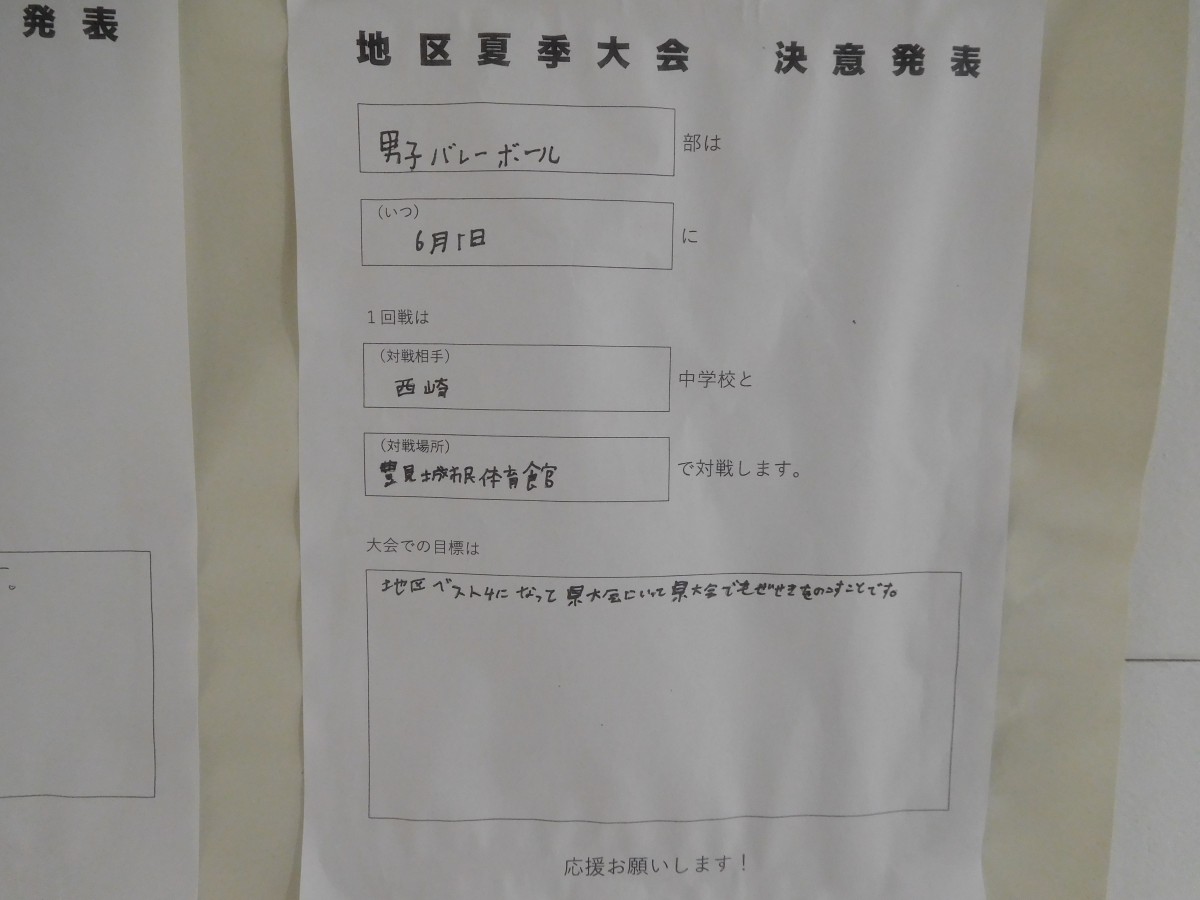 発表
地区夏季大会 決意発表
男子バレーボール 部は
(いつ)
6月1日 に
1回戦は
(対戦相手)
西崎 中学校と
(対戦場所)
豊見城市民体育館 で対戦します。
大会での目標は
地区ベスト4になって県大会にいって県大会でもぜせきをのこすことです。
応援お願いします!